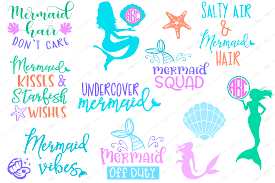 Mermaid
hair
DON'T CARE
SALTY AIR
&
Mermaid
HAIR
Mermaid
KISSES &
Starfish
WISHES
UNDERCOVER
mermaid
mermaid
SQUAD
Mermaid
vibes
mermaid
OFF DUTY